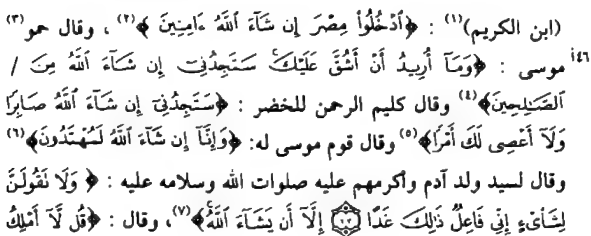 (ابن الكريم)(١) : ﴿ٱدْخُلُوا۟ مِصْرَ إِن شَآءَ ٱللَّهُ ءَامِنِينَ﴾(٢) ، وقال حمو(٣)
١٤٦ موسى : ﴿وَمَآ أُرِيدُ أَنْ أَشُقَّ عَلَيْكَ سَتَجِدُنِىٓ إِن شَآءَ ٱللَّهُ مِنَ /
ٱلصَّٰلِحِينَ﴾(٤) وقال كليم الرحمن للخضر : ﴿سَتَجِدُنِىٓ إِن شَآءَ ٱللَّهُ صَابِرًا
وَلَآ أَعْصِى لَكَ أَمْرًا﴾(٥) وقال قوم موسى له: ﴿وَإِنَّآ إِن شَآءَ ٱللَّهُ لَمُهْتَدُونَ﴾(٦)
وقال لسيد ولد آدم وأكرمهم عليه صلوات الله وسلامه عليه : ﴿ وَلَا تَقُولَنَّ
لِشَا۟ىْءٍ إِنِّى فَاعِلٌ ذَٰلِكَ غَدًا ٢٣ إِلَّآ أَن يَشَآءَ ٱللَّهُ﴾(٧)، وقال : ﴿قُل لَّآ أَمْلِكُ